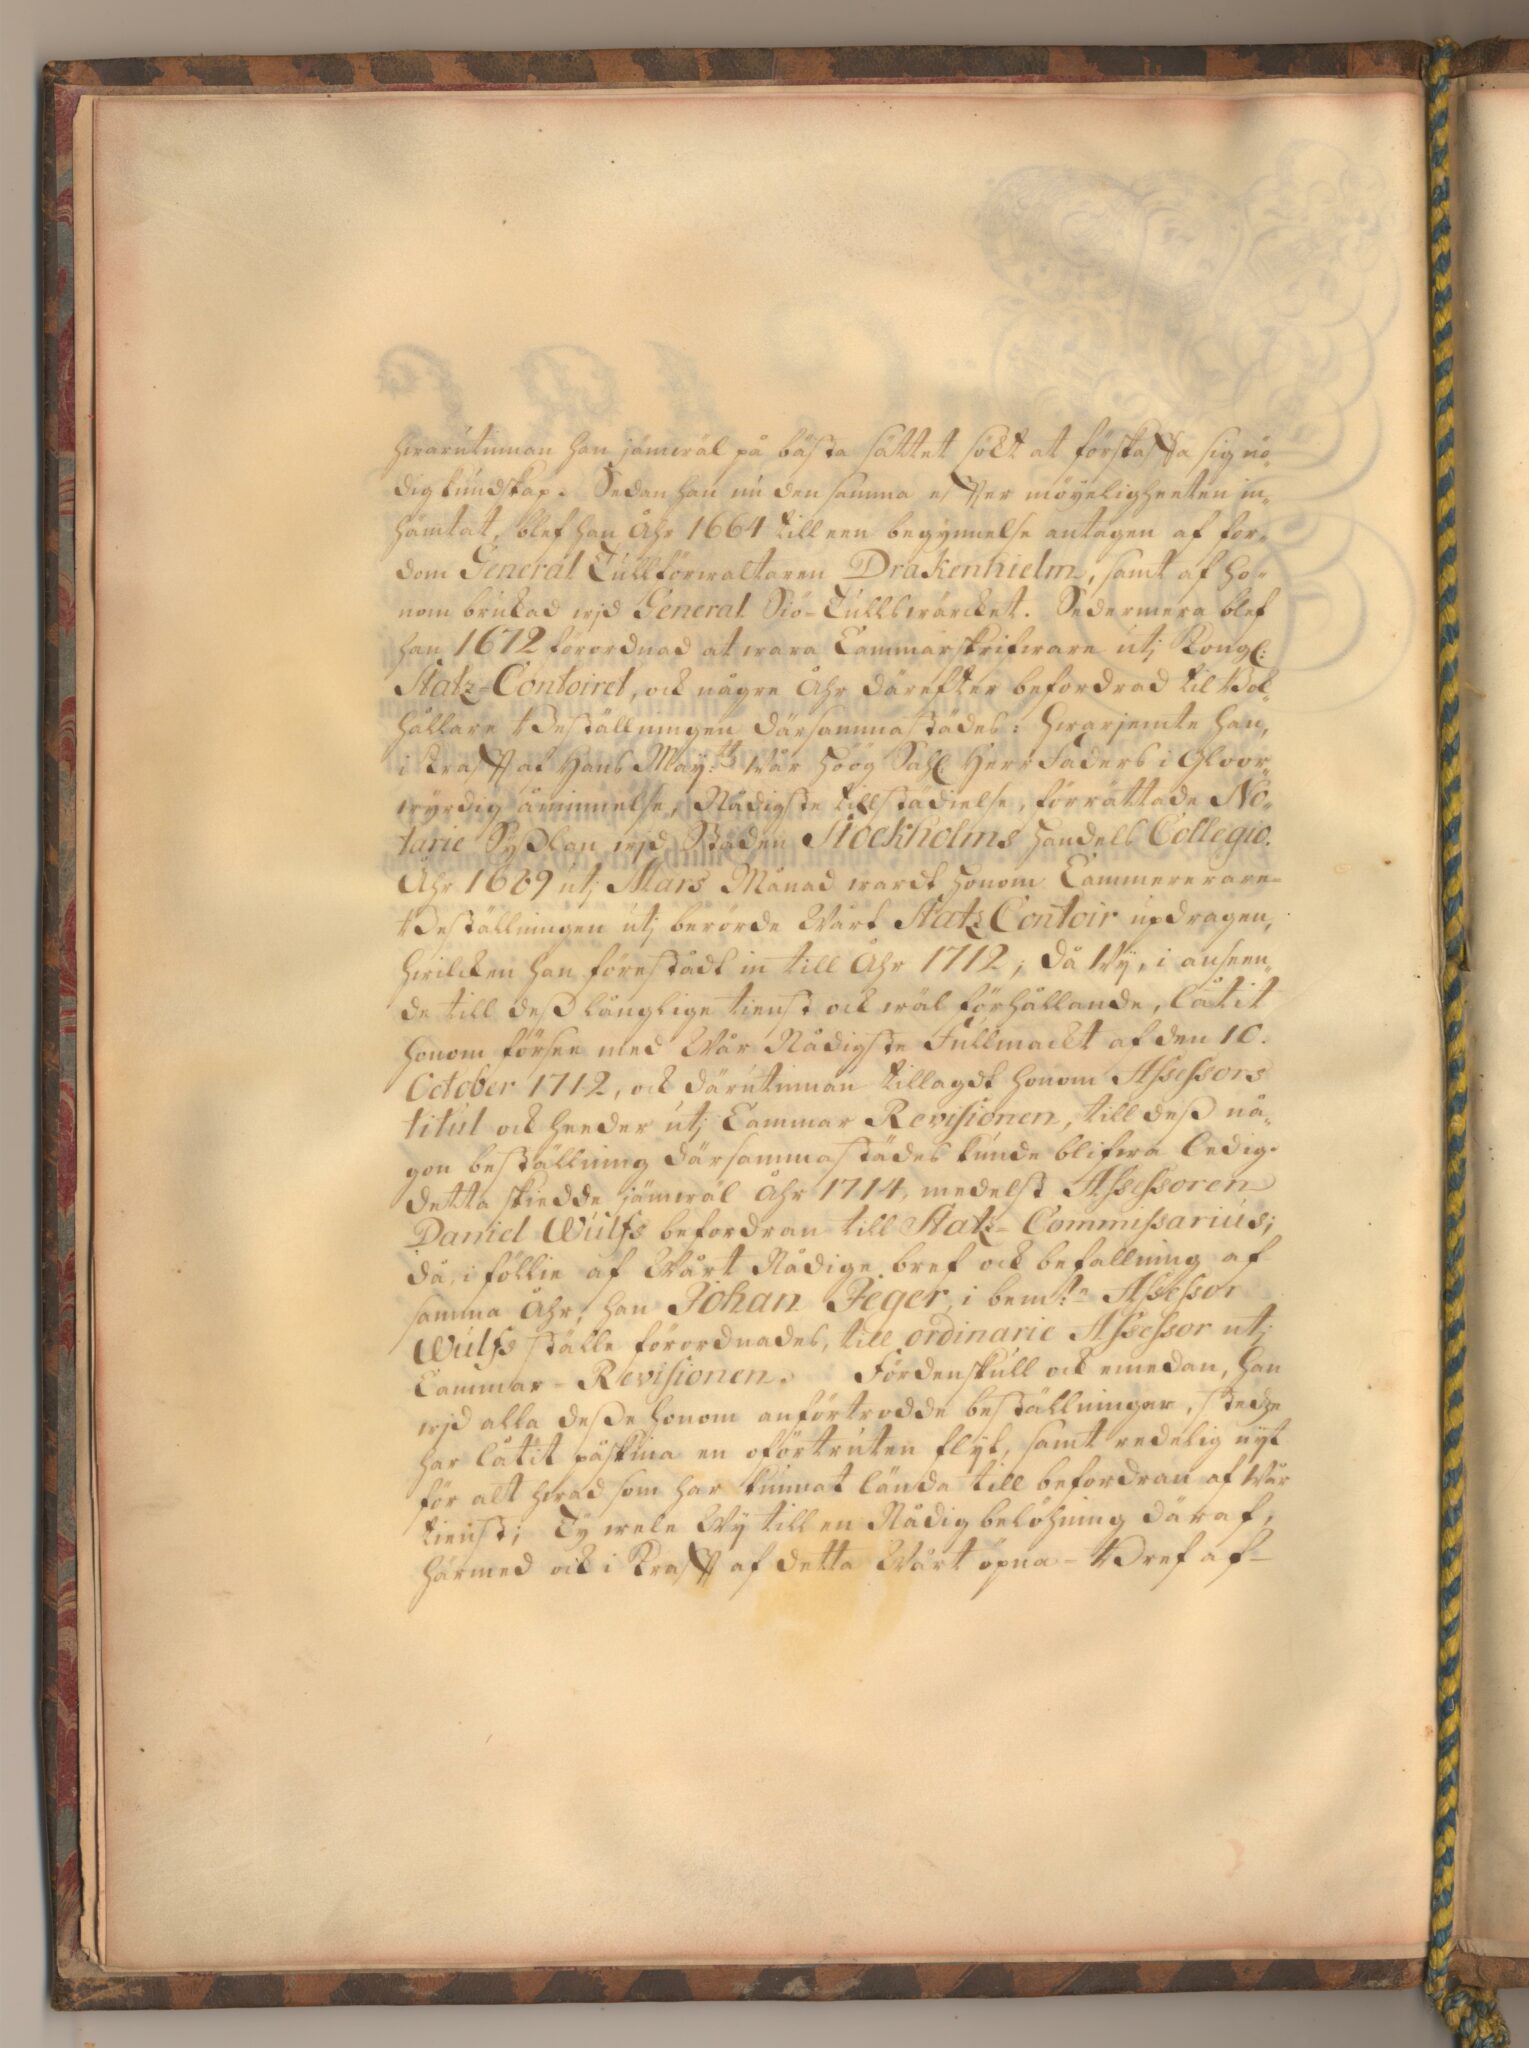 hwarutinnan han jämwäl på bästa sättet sökt at förskaffa sig nö-
dig kundskap. Sedan han nu den samma efter möyeligheeten in-
hämtat, blef han Åhr 1664 till een begynnelse antagen af for-
dom General Tullförwaltaren Drakenhielm, samt af ho-
nom brukad wjd General Siö-Tullswärcket. Sedermera blef
han 1672 förordnad at wara Cammarskrifware utj Kongl:
Statz-Contoiret, ock någre Åhr därefter befordrad til Bok-
hållare Beställningen därsammastädes: hwarjemte han,
i Krafft af Hans May:tz Wår Höög Sahl. Herr Faders i Gloor-
wyrdig åminnelse, Nådigste tillstädielse, förrättade No-
tarie Sysslan wjd Staden Stockholms Handels Collegio.
Åhr 1689 utj Mars Månad wardt honom Cammererare-
Beställningen utj berörde Wårt Statz Contoir updragen,
hwilcken han förestådt in till Åhr 1712; då Wy, i anseen-
de till dess långlige tienst ock wäl förhållande, låtit
honom försee med Wår Nådigste Fullmackt af den 10.
October 1712, ock därutinnan tillagdt honom Assessors
titul ock heeder utj Cammar Revisionen, till dess nå-
gon beställning därsammastädes kunde blifwa ledig.
Detta skiedde jämwäl Åhr 1714, medelst Assessoren
Daniel Wulfs befordran till Statz-Commissarius;
då, i föllie af Wårt Nådige bref ock befallning af
samma Åhr, han Johan Jeger, i bem:te Assessor
Wulfs ställe förordnades, till ordinarie Assessor utj
Cammar-Revisionen. Fördenskull ock emedan, han
wjd alla desse honom anförtrodde beställningar, stedze
har låtit påskina en oförtruten flyt, samt redelig nyt
för alt hwad som har kunnat lända till befordran af Wår
tienst; Ty wele Wy till en Nådig belöhning däraf,
härmed ock i Krafft af detta Wårt öpna-Bref af-